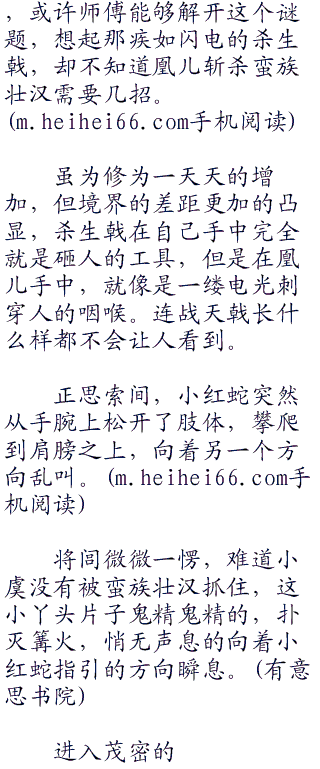 ，或许师傅能够解开这个谜
题，想起那疾如闪电的杀生
戟，却不知道凰儿斩杀蛮族
壮汉需要几招。
(m.heihei66.com手机阅读)
虽为修为一天天的增
加，但境界的差距更加的凸
显，杀生戟在自己手中完全
就是砸人的工具，但是在凰
儿手中，就像是一缕电光刺
穿人的咽喉。连战天戟长什
么样都不会让人看到。
正思索间，小红蛇突然
从手腕上松开了肢体，攀爬
到肩膀之上，向着另一个方
向乱叫。(m.heihei66.com手
机阅读)
将闾微微一愣，难道小
虞没有被蛮族壮汉抓住，这
小丫头片子鬼精鬼精的，扑
灭篝火，悄无声息的向着小
红蛇指引的方向瞬息。(有意
思书院)
进入茂密的